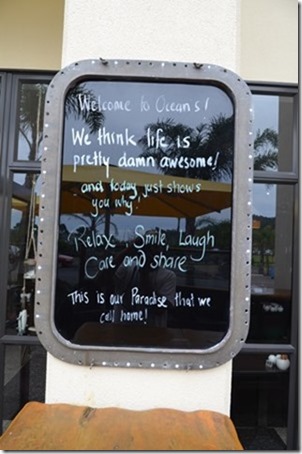 Welcome to Ocean's!
We think life is
pretty damn awesome!
and today just shows
you why!
Relax, Smile, Laugh
Care and share
This is our Paradise that we
call home!